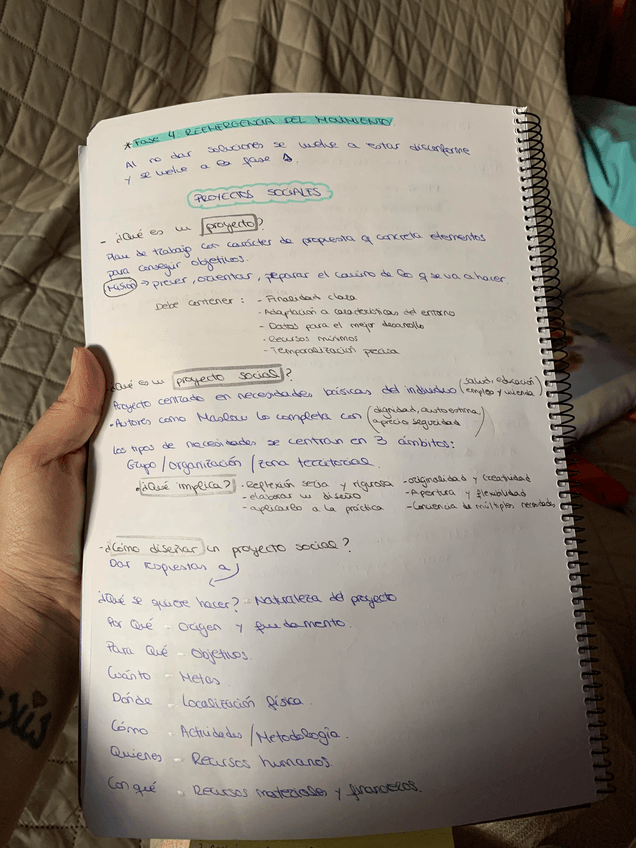 * Fase 4 REEMERGENCIA DEL MOVIMIENTO
Al no dar soluciones se vuelve a estar disconforme
y se vuelve a la fase 1.
PROYECTOS SOCIALES
- ¿Qué es un proyecto?
Plan de trabajo con carácter de propuesta q concreta elementos
para conseguir objetivos.
Misión → prever, orientar, preparar el camino de lo q se va a hacer.
Debe contener : - Finalidad clara
- Adaptación a características del entorno
- Datos para el mejor desarrollo
- Recursos mínimos
- Temporalización precisa
¿Qué es un proyecto social?
Proyecto centrado en necesidades básicas del individuo (salud, educación, empleo y vivienda)
- Autores como Maslow lo completa con (dignidad, autoestima, aprecio, seguridad)
Los tipos de necesidades se centran en 3 ámbitos:
Grupo / organización / zona territorial.
¿Qué implica? - Reflexión seria y rigurosa - originalidad y creatividad
- elaborar un diseño - Apertura y flexibilidad
- aplicarlo a la práctica - Conciencia de múltiples necesidades
- ¿Cómo diseñar un proyecto social?
Dar respuestas a
¿Qué se quiere hacer? - Naturaleza del proyecto
Por Qué - Origen y fundamento.
Para Qué - Objetivos.
Cuánto - Metas
Dónde - Localización física.
Cómo - Actividades / Metodología.
Quienes - Recursos humanos.
Con qué - Recursos materiales y financieros.